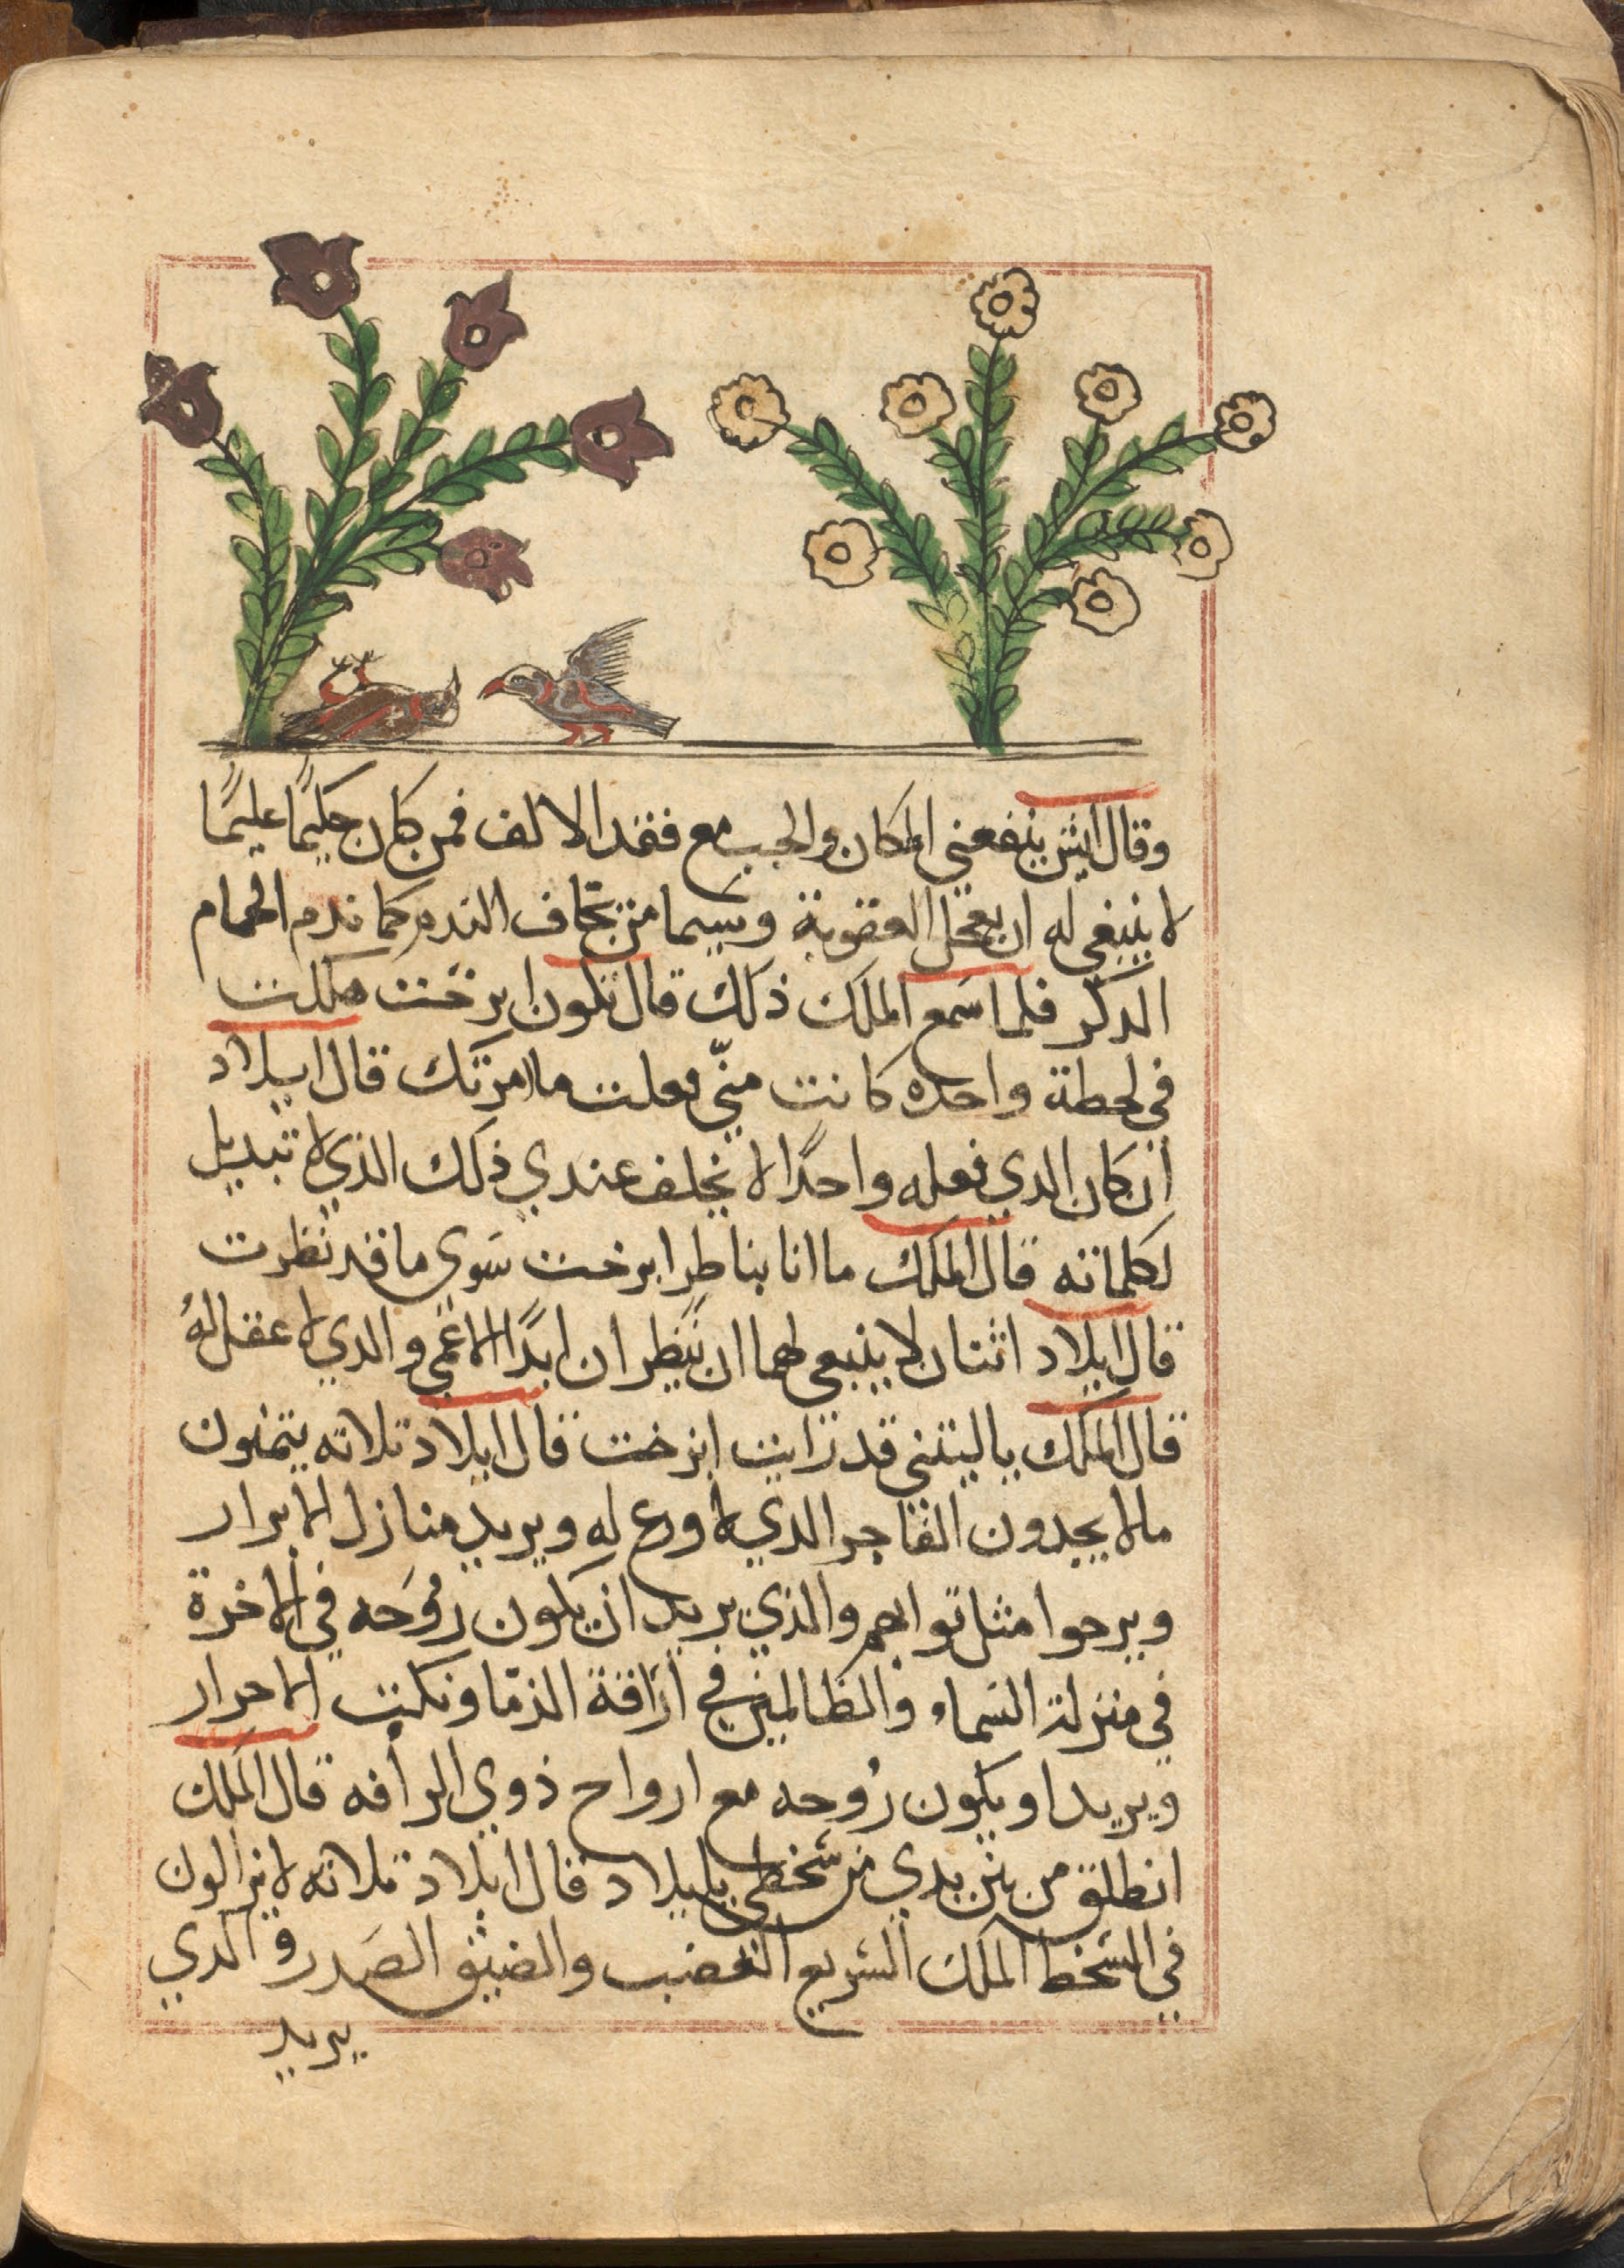 وقال ايش ينفعني المكان والحب مع فقد الالف فمن كان حكيمًا عليمًا
لا ينبغي له ان يعجل العقوبة وسيما من يخاف الندم كما ندم الحمام
الدكر فلما سمع الملك ذلك قال تكون ابرخت هلكت
في لحظة واحده كانت منّي فعلت ما امرتك قال ابيلاد
ان كان الدي فعله واحدًا لا يخلف عندي ذلك الذي لا تبديل
لكلماته قال الملك ما انا بناطر ابرخت سوى ما قد نظرت
قال ايلاد اثنان لا ينبغي لهما ان ينظران ابدًا الاعمى والدي لا عقل لهُ
قال الملك ياليتني قد رايت ابرخت قال ايلاد تلاته يتمنون
مالا يجدون الفاجر الدي لا ورع له ويريد منازل الابرار
ويرجوا مثل توابهم والذي يريد ان يكون رُوحَه في الاخرة
في منزلة السماء والظالمين في اراقة الدما ونكبت الاحرار
ويريد او يكون رُوحه مع ارواح ذوي الرأفه قال الملك
انطلق من بين يدي من سخطي يا ايلاد قال ايلاد تلاته لا يزالون
في السخط الملك السريع الغضب والضيق الصَدر والدي
يريد